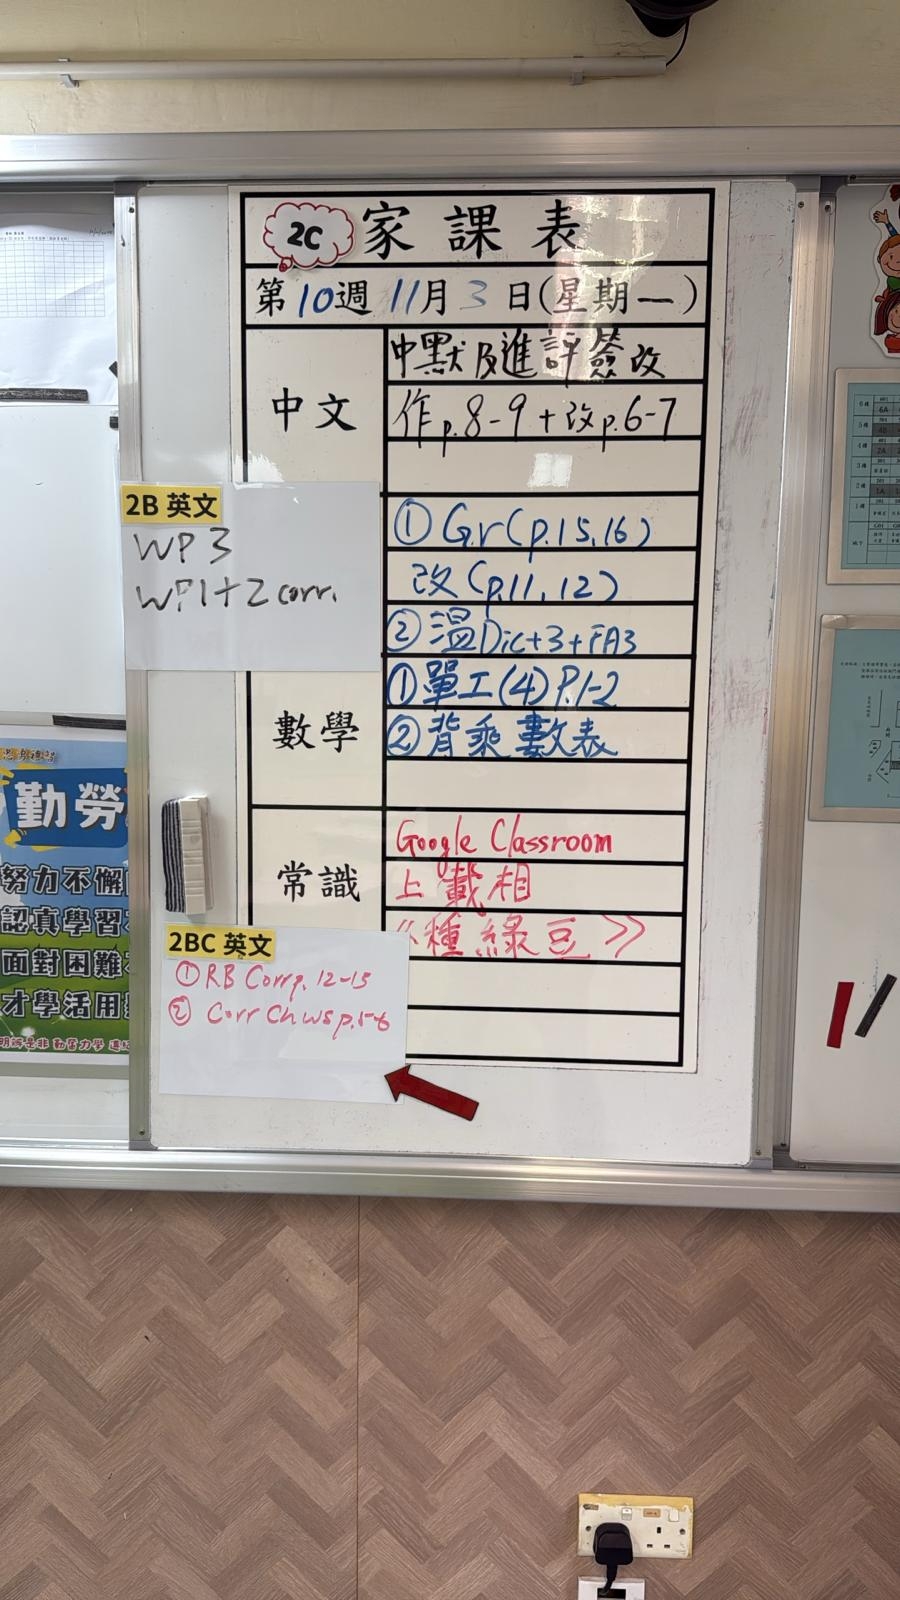 2C 家課表
第10週 11月3日(星期一)
中文
中默及進評簽改
作p.8-9+改p.6-7
2B 英文
WP 3
WP1+2 corr.
①Gr(p.15,16)
改(p.11,12)
②溫Dic+3+FA3
數學
①單工(4)P.1-2
②背乘數表
常識
Google Classroom
上載相
《種綠豆》
2BC 英文
①RB Corr p. 12-15
② Corr Ch WS p.5-6
勤勞
努力不懈
認真學習
面對困難
才學活用